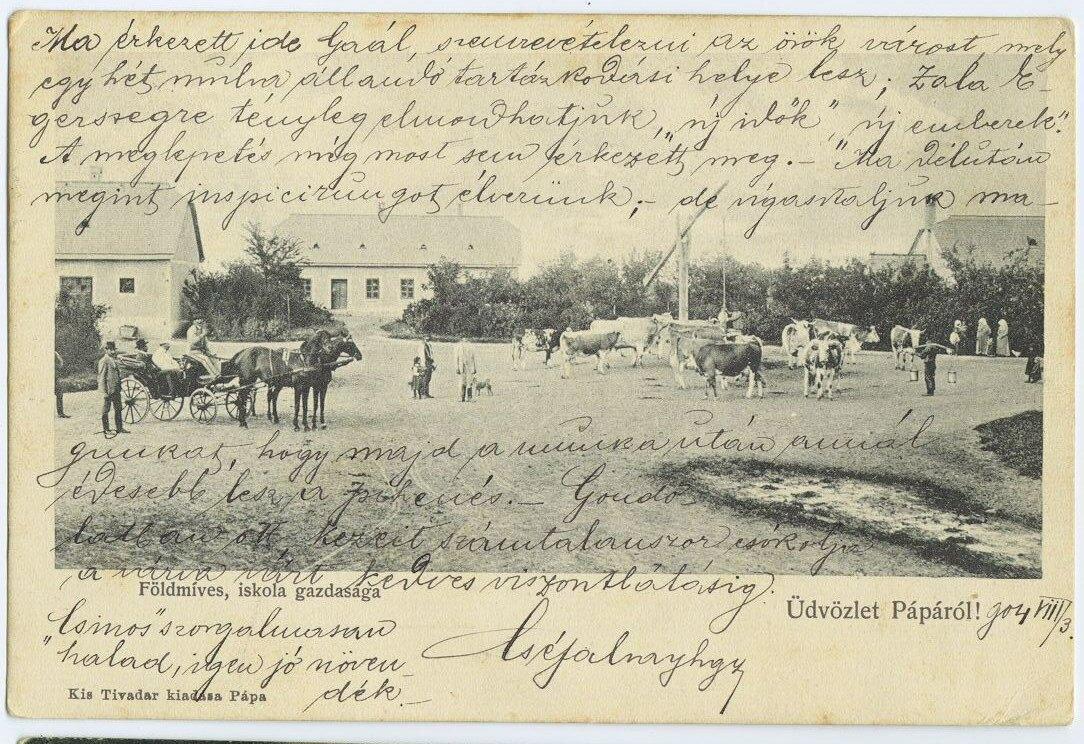 Ma érkezett ide Gaál, szemrevételezni az örök várost, mely
egy hét mulva állandó tartózkodási helye lesz; Zala E-
gerssegre tényleg elmondhatjuk „új idők", „új emberek".
A meglepetés még most sem érkezett meg. - Ma délután
megint inspicirungot élverünk; - de vigasztaljuk ma-
gunkat, hogy majd a munka után annál
édesebb lesz a pihenés. - Gondo-
latban ott kezeit számtalanszor csókolja
a várva várt kedves viszontlátásig.
Földmíves, iskola gazdasága
Üdvözlet Pápáról! 904 VIII/3.
„Csinos" szorgalmasan
halad, igen jó növen-
dék. -
Kis Tivadar kiadása Pápa